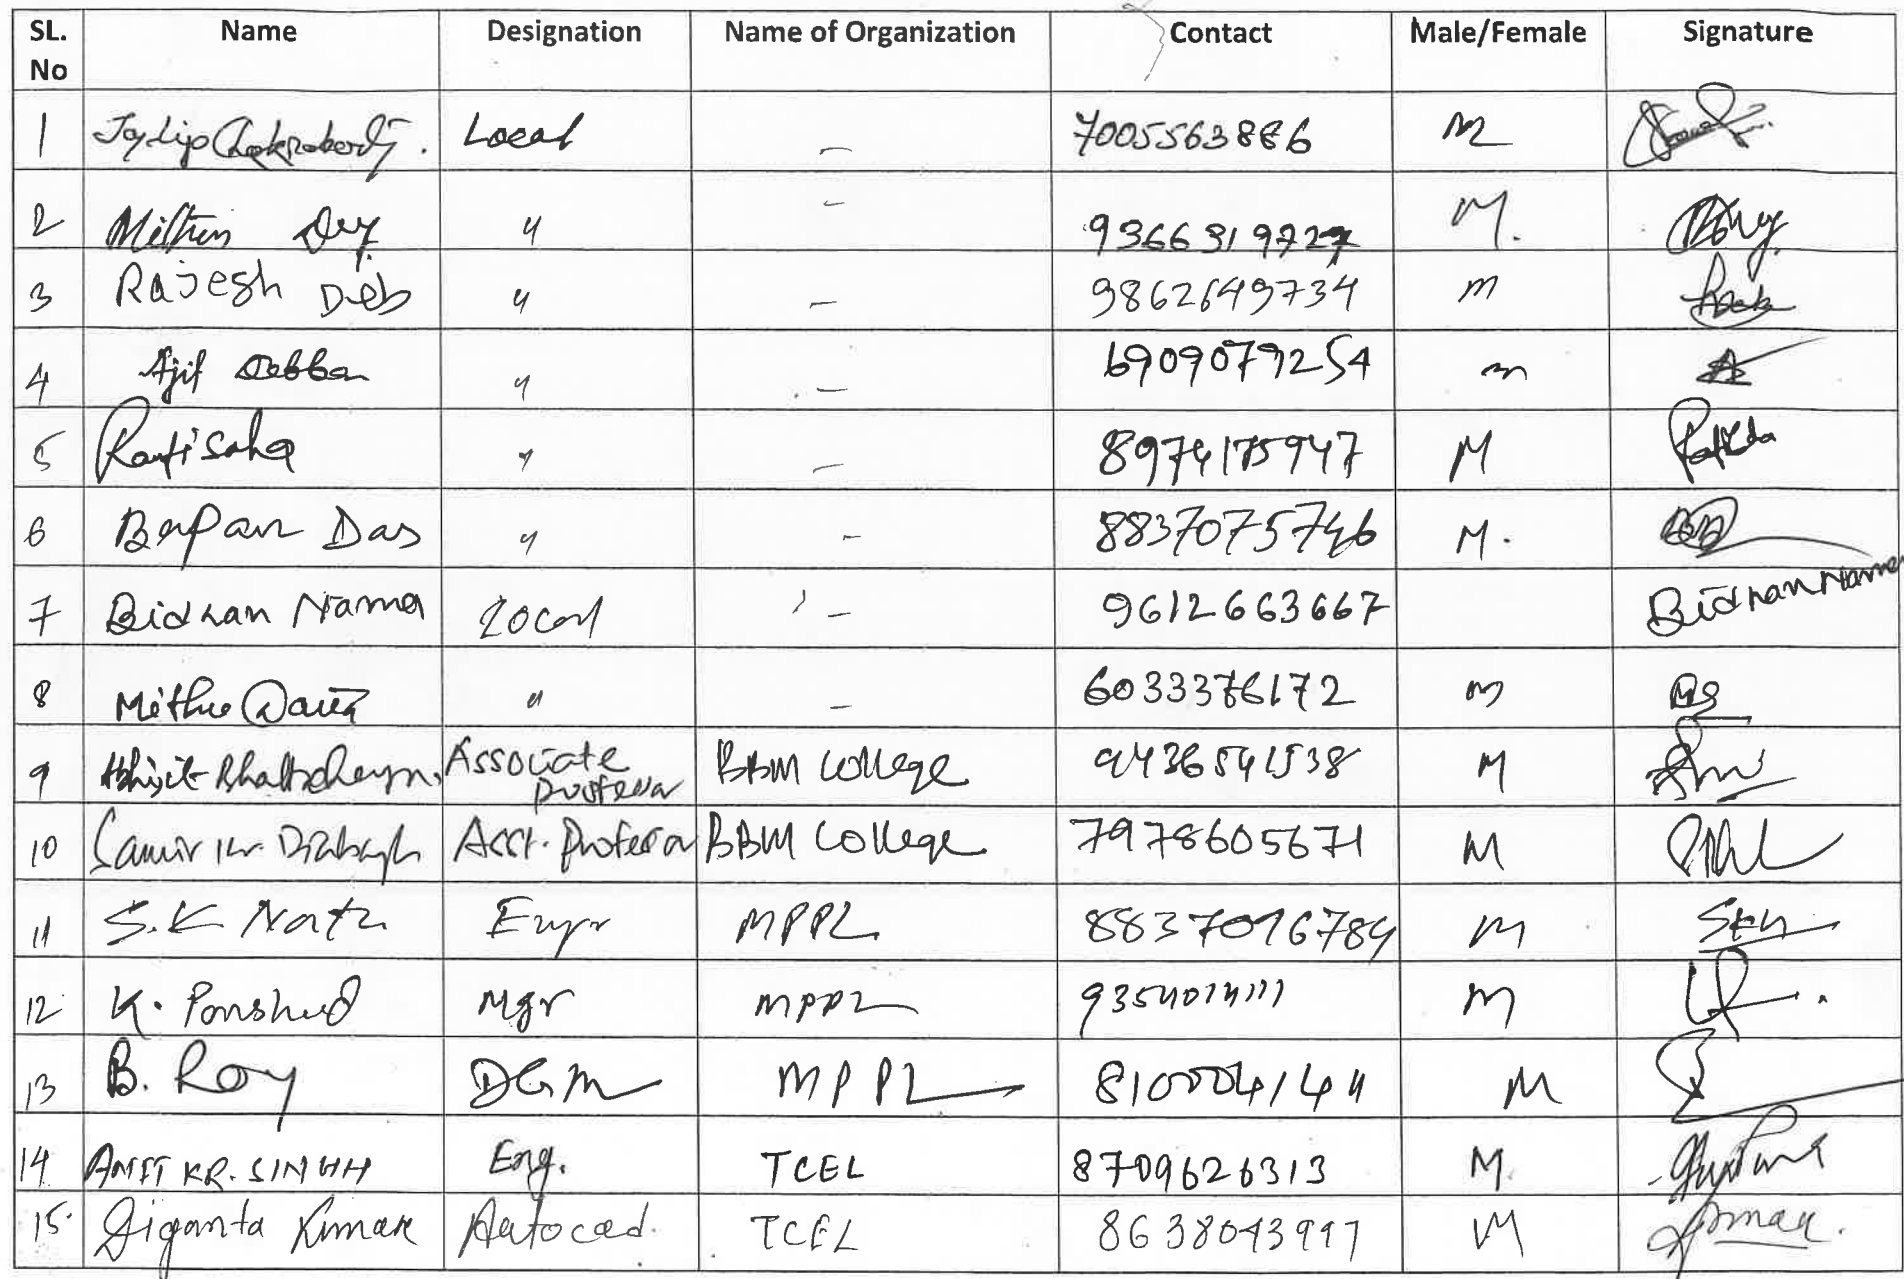 SL. No Name Designation Name of Organization Contact Male/Female Signature
1 Joydip Chakraborty. Local – 7005563886 M
2 Mithun Dey 〃 – 9366319727 M.
3 Rajesh Deb 〃 – 9862649734 M
4 Ajit Debbar 〃 – 6909079254 m
5 Ratisaha 〃 – 8974175947 M
6 Bapan Das 〃 – 8837075746 M.
7 Bidhan Nama Local – 9612663667 Bidhan Nama
8 Mithu 〃 – 6033376172 m
9 Abhijit Bhattacharya Associate Professor BBM College 9436541538 M
10 Samir Kr. Asst. Professor BBM College 7978605671 M
11 S.K Nath Engr MPPL 8837076784 M SKN
12 K. Mgr MPPL M
13 B. Roy DGM MPPL M
14 AMIT KR. SINGH Eng. TCEL 8709626313 M.
15 Diganta Kumar Autocad. TCEL 8638043997 M